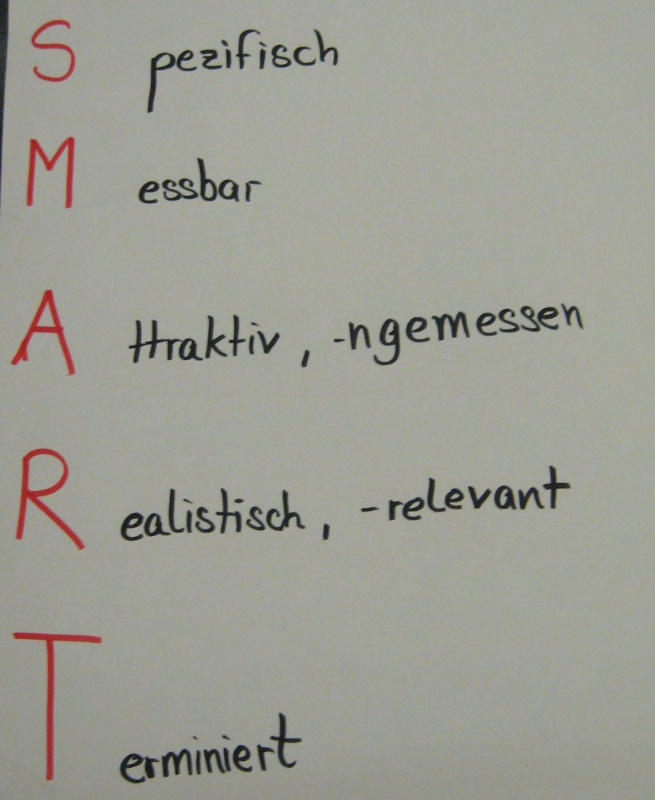 S pezifisch
M essbar
A ttraktiv, -ngemessen
R ealistisch, -relevant
T erminiert